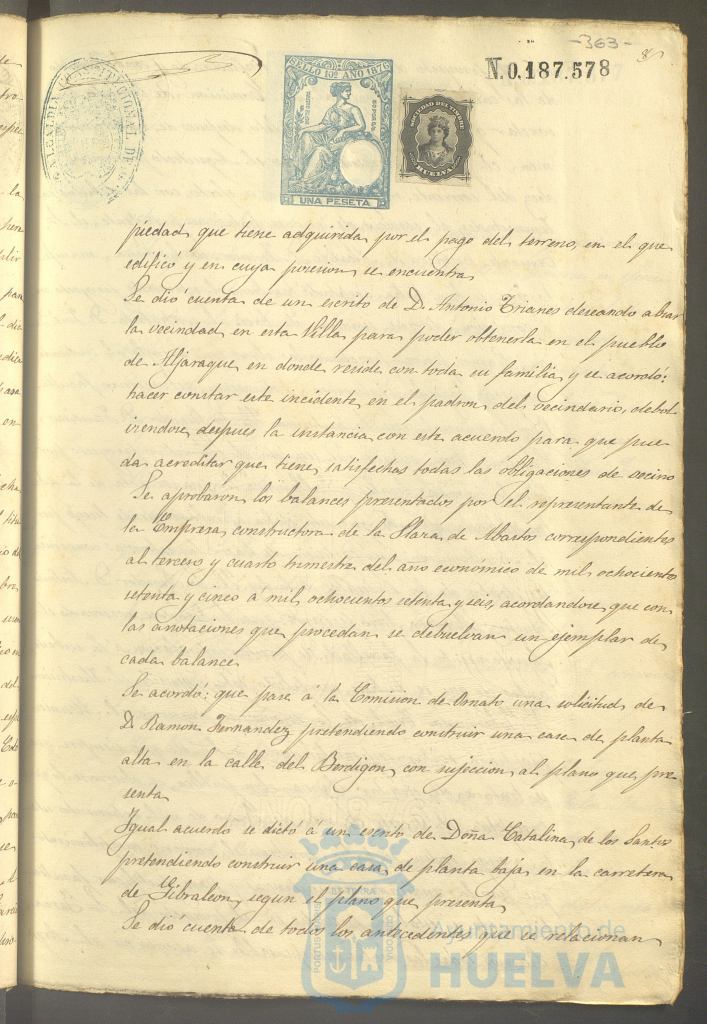 -363-
N.0,187.578
ALCALDÍA CONSTITUCIONAL DE
SELLO 10º AÑO 1876
UNA PESETA
SOCIEDAD DEL TIMBRE
HUELVA
piedad que tiene adquirida por el pago del terreno, en el que
edificó y en cuya posesion se encuentra
Se dió cuenta de un escrito de D. Antonio Trianes deseando alzar
la vecindad en esta Villa para poder obtenerla en el pueblo
de Aljaraque en donde reside con toda su familia, y se acordó:
hacer constar este incidente en el padron del vecindario, debol
viendose despues la instancia con este acuerdo para que pue
da acreditar que tiene satisfechas todas las obligaciones de vecino
Se aprobaron los balances presentados por el representante de
la Empresa constructora de la Plaza de Abastos correspondientes
al tercero y cuarto trimestre del año económico de mil ochocientos
setenta y cinco á mil ochocientos setenta y seis, acordandose que con
las anotaciones que procedan se debuelvan un ejemplar de
cada balance
Se acordó: que pase á la Comision de Ornato una solicitud de
D. Ramon Fernandez pretendiendo construir una casa de planta
alta en la calle del Berdigon, con sujeccion al plano que pre
senta
Igual acuerdo se dictó á un escrito de Doña Catalina de los Santos
pretendiendo construir una casa de planta baja en la carretera
de Gibraleon, segun el plano que presenta
Se dió cuenta de todos los antecedentes que se relacionan
Ayuntamiento de
HUELVA